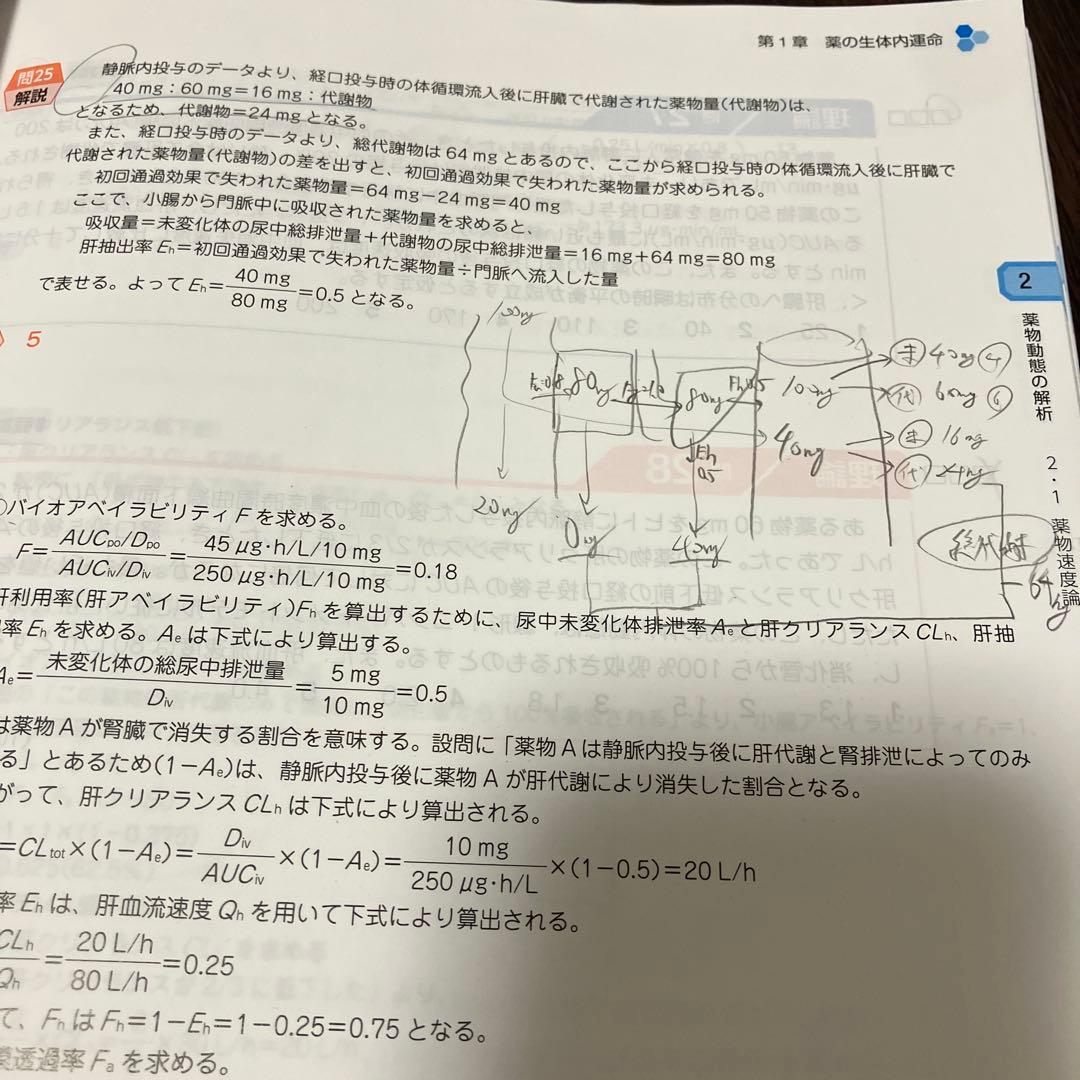 第1章 薬の生体内運命
問25
解説
静脈内投与のデータより、経口投与時の体循環流入後に肝臓で代謝された薬物量(代謝物)は、
40 mg：60 mg＝16 mg：代謝物
となるため、代謝物＝24 mg となる。
また、経口投与時のデータより、総代謝物は 64 mg とあるので、ここから経口投与時の体循環流入後に肝臓で
代謝された薬物量(代謝物)の差を出すと、初回通過効果で失われた薬物量が求められる。
初回通過効果で失われた薬物量＝64 mg－24 mg＝40 mg
ここで、小腸から門脈中に吸収された薬物量を求めると、
吸収量＝未変化体の尿中総排泄量＋代謝物の尿中総排泄量＝16 mg＋64 mg＝80 mg
肝抽出率 Eh＝初回通過効果で失われた薬物量÷門脈へ流入した量
で表せる。よって Eh＝40 mg/80 mg＝0.5 となる。
2
薬物動態の解析 2・1 薬物速度論
5
100mg
80mg
80mg
Fh0.5
100mg
40mg
未 40mg 4
代 60mg 6
未 16mg
代 24mg
Eh
0.5
20mg
0mg
40mg
総代謝
64mg
バイオアベイラビリティ F を求める。
F＝AUCpo/Dpo/AUCiv/Div＝45 μg・h/L/10 mg/250 μg・h/L/10 mg＝0.18
肝利用率(肝アベイラビリティ)Fh を算出するために、尿中未変化体排泄率 Ae と肝クリアランス CLh、肝抽
率 Eh を求める。Ae は下式により算出する。
Ae＝未変化体の総尿中排泄量/Div＝5 mg/10 mg＝0.5
は薬物 A が腎臓で消失する割合を意味する。設問に「薬物 A は静脈内投与後に肝代謝と腎排泄によってのみ
る」とあるため(1－Ae)は、静脈内投与後に薬物 A が肝代謝により消失した割合となる。
がって、肝クリアランス CLh は下式により算出される。
＝CLtot×(1－Ae)＝Div/AUCiv×(1－Ae)＝10 mg/250 μg・h/L×(1－0.5)＝20 L/h
率 Eh は、肝血流速度 Qh を用いて下式により算出される。
CLh/Qh＝20 L/h/80 L/h＝0.25
て、Fh は Fh＝1－Eh＝1－0.25＝0.75 となる。
膜透過率 Fa を求める。